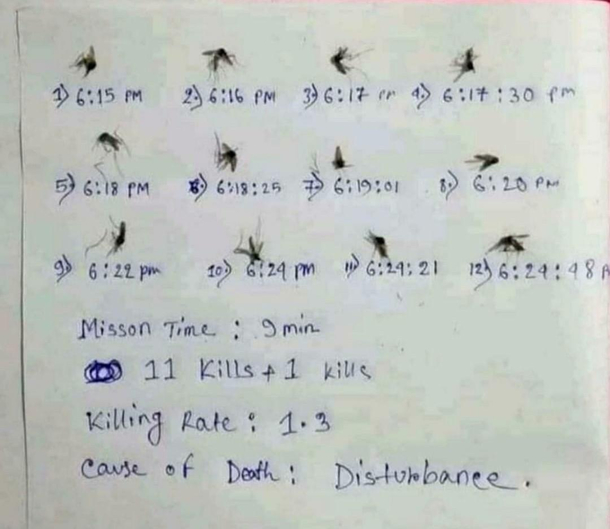 1) 6:15 PM 2) 6:16 PM 3) 6:17 PM 4) 6:17:30 pm
5) 6:18 PM 6) 6:18:25 7) 6:19:01 8) 6:20 PM
9) 6:22 pm 10) 6:24 pm 11) 6:24:21 12) 6:24:48 P
Misson Time : 9 min
11 Kills + 1 kills
Killing Rate : 1.3
Cause of Death : Disturbance.